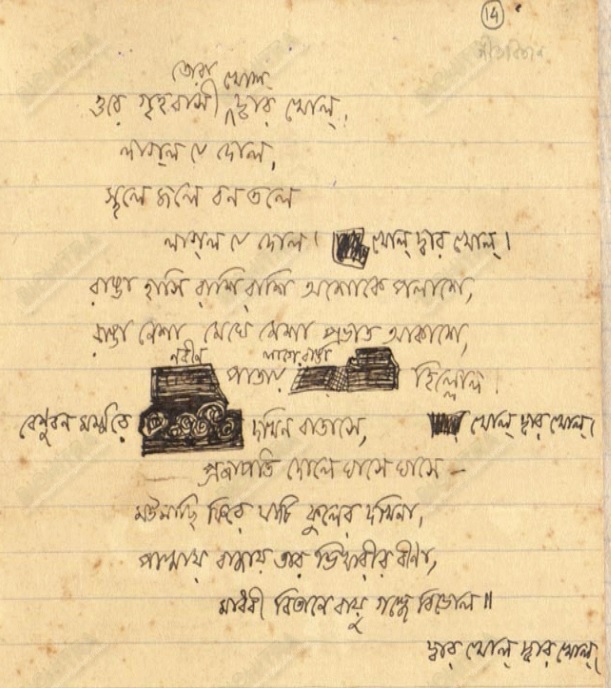 14
গীতবিতান
তোরা খোল্
ওরে গৃহবাসী দ্বার খোল্,
লাগ্‌ল যে দোল,
স্থলে জলে বনতলে
লাগ্‌ল যে দোল। খোল্ দ্বার খোল্।
রাঙা হাসি রাশি রাশি অশোকে পলাশে,
রাঙা নেশা মেঘে মেশা প্রভাত আকাশে,
নবীন লাগে রাঙা
পাতায় হিল্লোল,
বেণুবন মর্ম্মরে দখিন বাতাসে, খোল্ দ্বার খোল্।
প্রজাপতি দোলে ঘাসে ঘাসে –
মউমাছি ফিরে যাচি ফুলের দখিনা,
পাখায় বাজায় তার ভিখারীর বীণা,
মাধবী বিতানে বায়ু গন্ধে বিভোল॥
দ্বার খোল্ দ্বার খোল্।